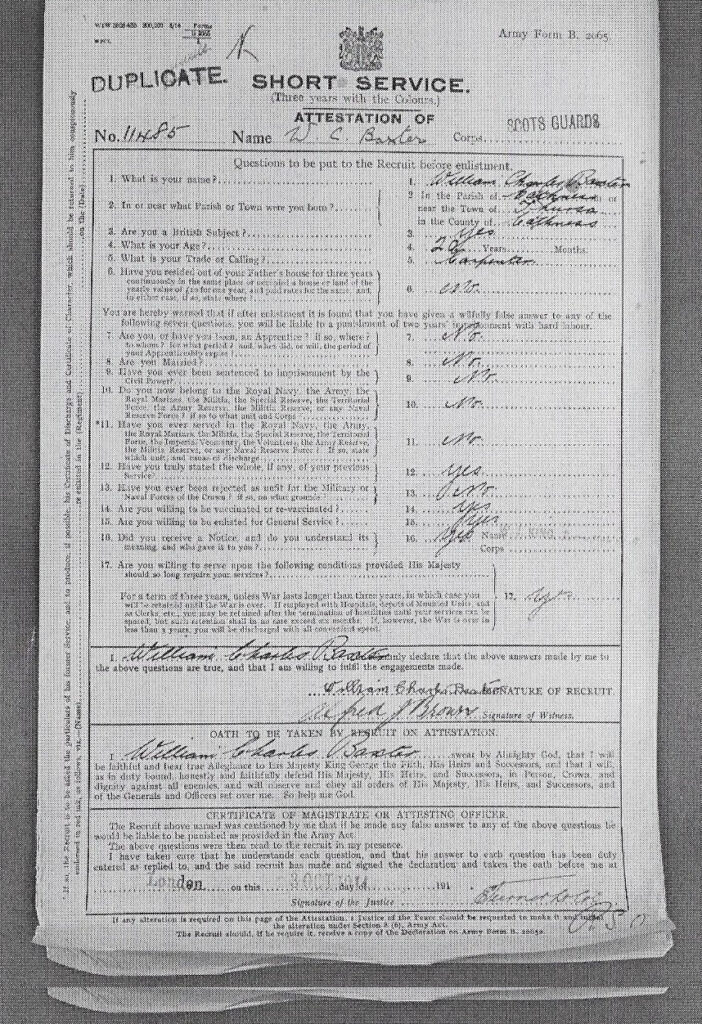 Army Form B. 2065.
DUPLICATE.
SHORT SERVICE.
(Three years with the Colours.)
ATTESTATION OF
No. 11485 Name W. C. Baxter Corps SCOTS GUARDS
Questions to be put to the Recruit before enlistment.
1. What is your name? 1. William Charles Baxter
2. In or near what Parish or Town were you born? 2 In the Parish of or
near the Town of Thurso
in the County of Cathness
3. Are you a British Subject? 3. Yes
4. What is your Age? 4. Years Months.
5. What is your Trade or Calling? 5. Carpenter
6. Have you resided out of your Father's house for three years
continuously in the same place or occupied a house or land of the
yearly value of £10 for one year, and paid rates for the same, and,
in either case, if so, state where? 6. No.
You are hereby warned that if after enlistment it is found that you have given a wilfully false answer to any of the
following seven questions, you will be liable to a punishment of two years' imprisonment with hard labour.
7. Are you, or have you been, an Apprentice? if so, where?
to whom? for what period? and, when did, or will, the period of
your Apprenticeship expire? 7. No.
8. Are you Married? 8. No.
9. Have you ever been sentenced to imprisonment by the
Civil Power? 9. No.
10. Do you now belong to the Royal Navy, the Army, the
Royal Marines, the Militia, the Special Reserve, the Territorial
Force, the Army Reserve, the Militia Reserve, or any Naval
Reserve Force? if so to what unit and Corps? 10. No.
*11. Have you ever served in the Royal Navy, the Army,
the Royal Marines, the Militia, the Special Reserve, the Territorial
Force, the Imperial Yeomanry, the Volunteers, the Army Reserve,
the Militia Reserve, or any Naval Reserve Force? If so, state
which unit, and cause of discharge 11. No.
12. Have you truly stated the whole, if any, of your previous
Service? 12. yes
13. Have you ever been rejected as unfit for the Military or
Naval Forces of the Crown? if so, on what grounds? 13. No.
14. Are you willing to be vaccinated or re-vaccinated? 14. yes
15. Are you willing to be enlisted for General Service? 15. yes
16. Did you receive a Notice, and do you understand its
meaning, and who gave it to you? 16. yes Name
Corps
17. Are you willing to serve upon the following conditions provided His Majesty
should so long require your services?
For a term of three years, unless War lasts longer than three years, in which case you
will be retained until the War is over. If employed with Hospitals, depots of Mounted Units, and
as Clerks, etc., you may be retained after the termination of hostilities until your services can be
spared, but such retention shall in no case exceed six months. If, however, the War is over in
less than 3 years, you will be discharged with all convenient speed. 17. yes
I, William Charles Baxter solemnly declare that the above answers made by me to
the above questions are true, and that I am willing to fulfil the engagements made.
William Charles Baxter SIGNATURE OF RECRUIT.
Alfred J Brown Signature of Witness.
OATH TO BE TAKEN BY RECRUIT ON ATTESTATION.
I, William Charles Baxter swear by Almighty God, that I will
be faithful and bear true Allegiance to His Majesty King George the Fifth, His Heirs and Successors, and that I will,
as in duty bound, honestly and faithfully defend His Majesty, His Heirs, and Successors, in Person, Crown, and
dignity against all enemies, and will observe and obey all orders of His Majesty, His Heirs and Successors, and
of the Generals and Officers set over me. So help me God.
CERTIFICATE OF MAGISTRATE OR ATTESTING OFFICER.
The Recruit above named was cautioned by me that if he made any false answer to any of the above questions he
would be liable to be punished as provided in the Army Act.
The above questions were then read to the recruit in my presence.
I have taken care that he understands each question, and that his answer to each question has been duly
entered as replied to, and the said recruit has made and signed the declaration and taken the oath before me at
London on this OCT 1914 day of 191
Signature of the Justice
If any alteration is required on this page of the Attestation, a Justice of the Peace should be requested to make it and initial
the alteration under Section 8 (6), Army Act.
The Recruit should, if he require it, receive a copy of the Declaration on Army Form B. 2065a.